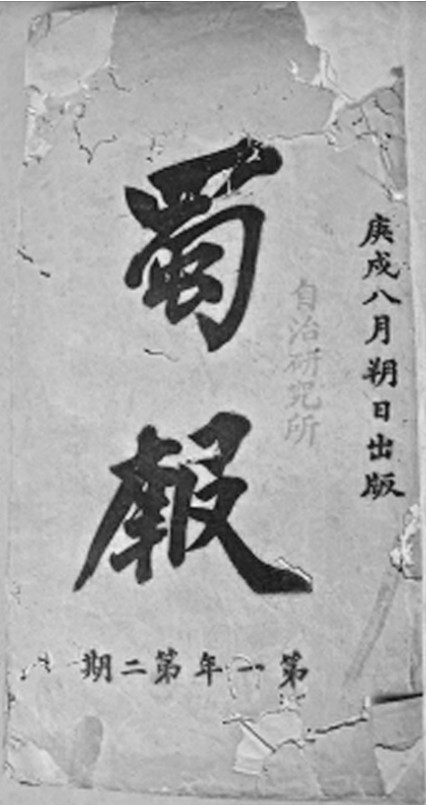 庚戌八月朔日出版
自治研究所
蜀報
第一年第二期